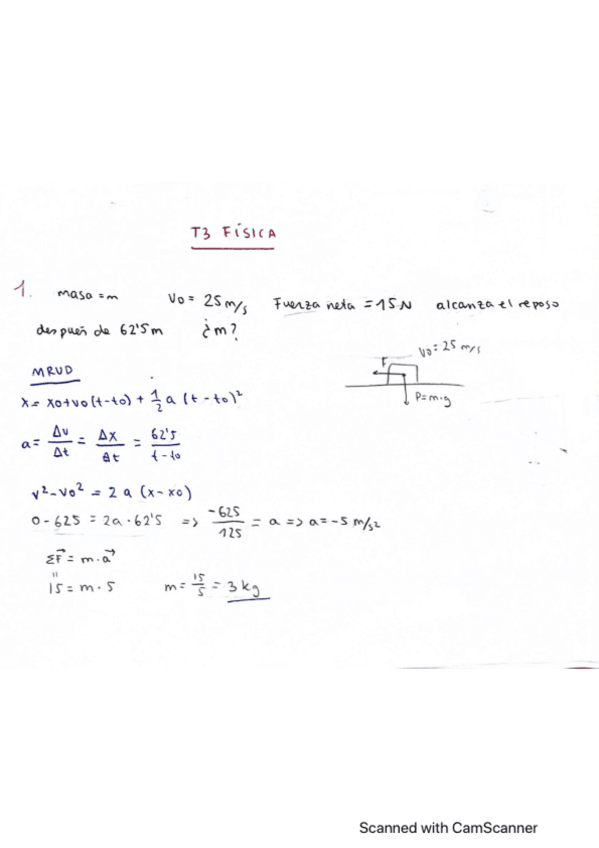 T3 FÍSICA
1. masa = m V0 = 25 m/s Fuerza neta = 15 N alcanza el reposo
después de 62'5 m ¿m?
F V0 = 25 m/s
P = m·g
MRUD
x = x0 + v0 (t - t0) + 1/2 a (t - t0)²
a = Δv/Δt = Δx/Δt = 62'5/t - t0
v² - v0² = 2 a (x - x0)
0 - 625 = 2a · 62'5 => -625/125 = a => a = -5 m/s²
ΣF⃗ = m · a⃗
15 = m · 5 m = 15/5 = 3 kg
Scanned with CamScanner